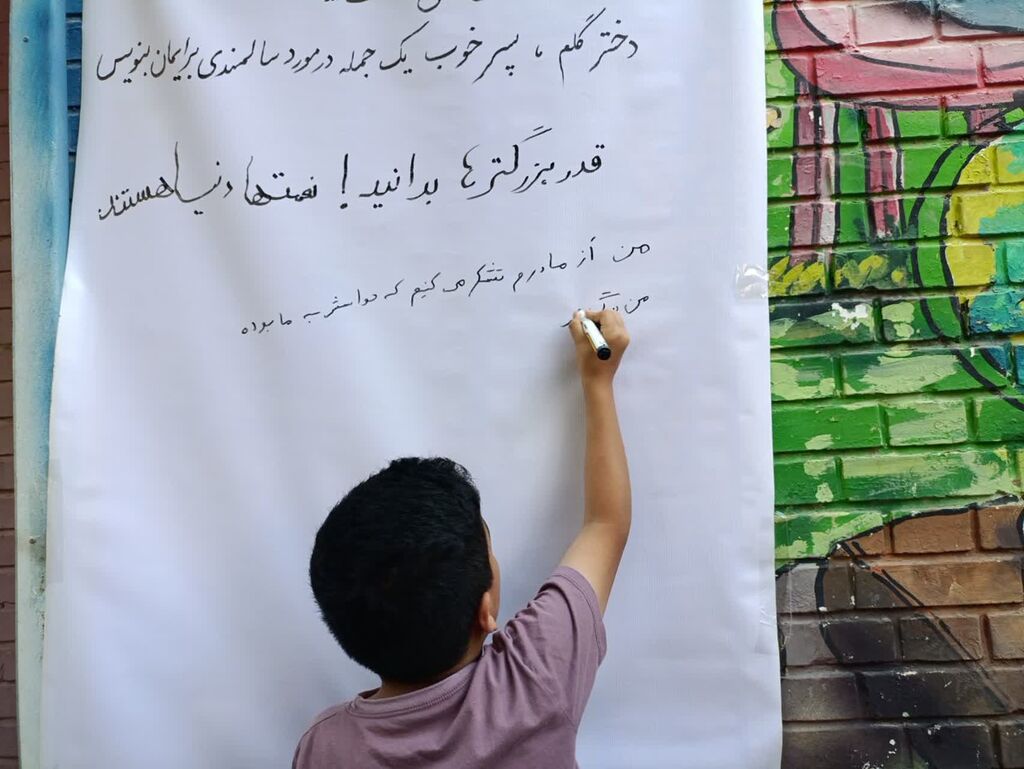 دختر گلم ، پسر خوب یک جمله در مورد سالمندی برایمان بنویس
قدر بزرگترها بدانید ! نعمتها دنیا هستند
من از مادرم تشکر می کنیم که حواسش به ما بوده
من